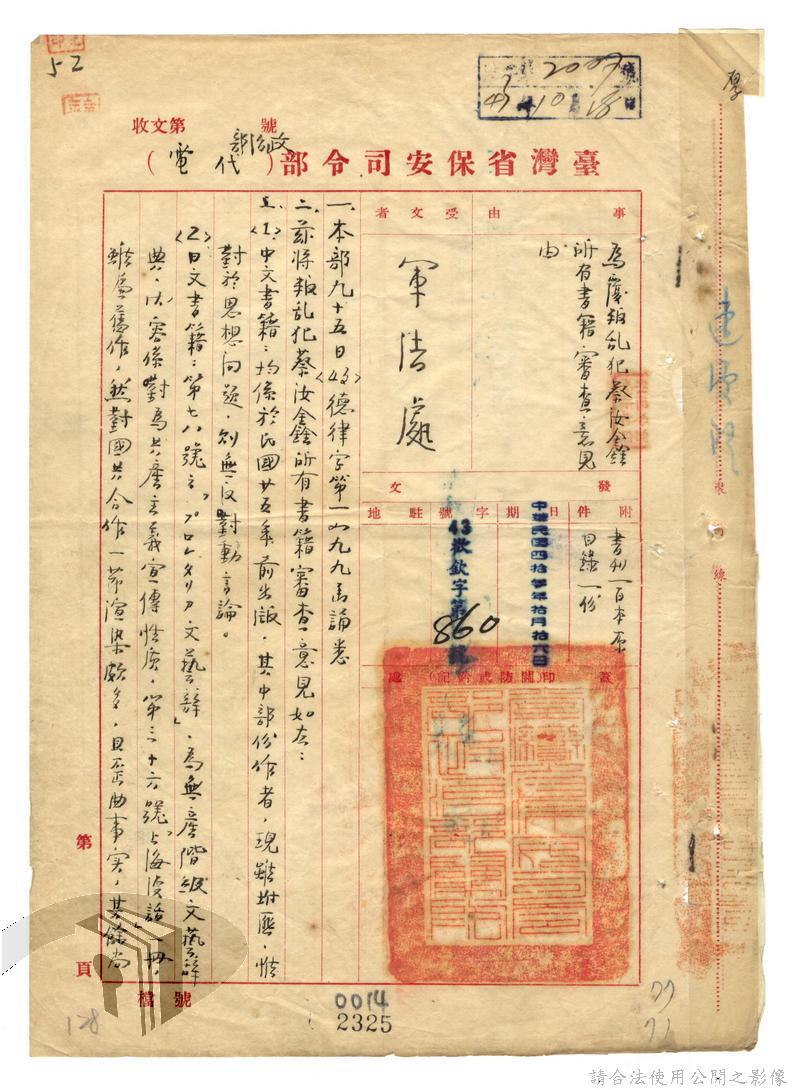 52
2007
43 10 18
收文第 號
臺灣省保安司令部政治部(代電)
事由
為覆叛乱犯蔡汝鑫
所有書籍審查意見
由
受文者
軍法處
發文
附件
書刊一百本原
目錄一份
日期
中華民國四拾叁年拾月拾六日
字號
43 欽字第860號
駐地
蓋印(關防或鈐記)處
一、本部九十五日(43)德律字第一九九号誦悉
二、茲將叛乱犯蔡汝鑫所有書籍審查意見如左:
〈1〉中文書籍:均係於民國廿五年前出版,其中部份作者,現雖附匪,惟
對於思想问題,則無反對動言論。
〈2〉日文書籍:第七八號之「プロレタリア文藝辞
典」内容係對為共產主義宣傳性质,第三十六號「上海夜話」一册,
雖為舊作,然對國共合作一節渲染頗多,且歪曲事实,其餘尚
第 頁
檔號
0014
2325
128
77
71
裝 訂 線
請合法使用公開之影像